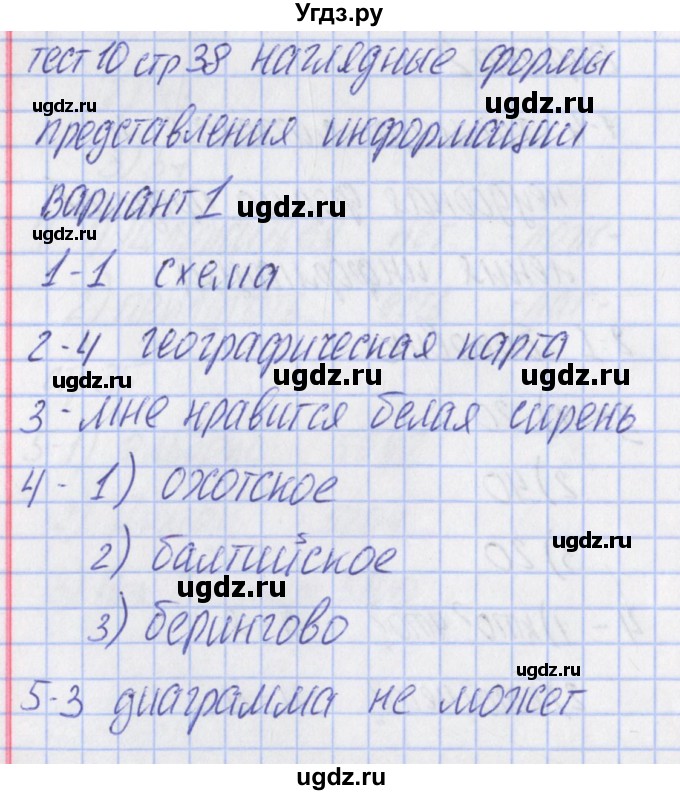 Угдз.ру
тест 10 стр 38 наглядные формы
ugdz.ru ugdz.ru
представления информации
вариант 1 ugdz.ru
ugdz.ru
1-1 схема
2-4 географическая карта
ugdz.ru ugdz.ru ugdz.ru
3-мне нравится белая сирень
4- 1) охотское
ugdz.ru
2) балтийское
ugdz.ru
3) берингово
ugdz.ru
5-3 диаграмма не может
ugdz.ru